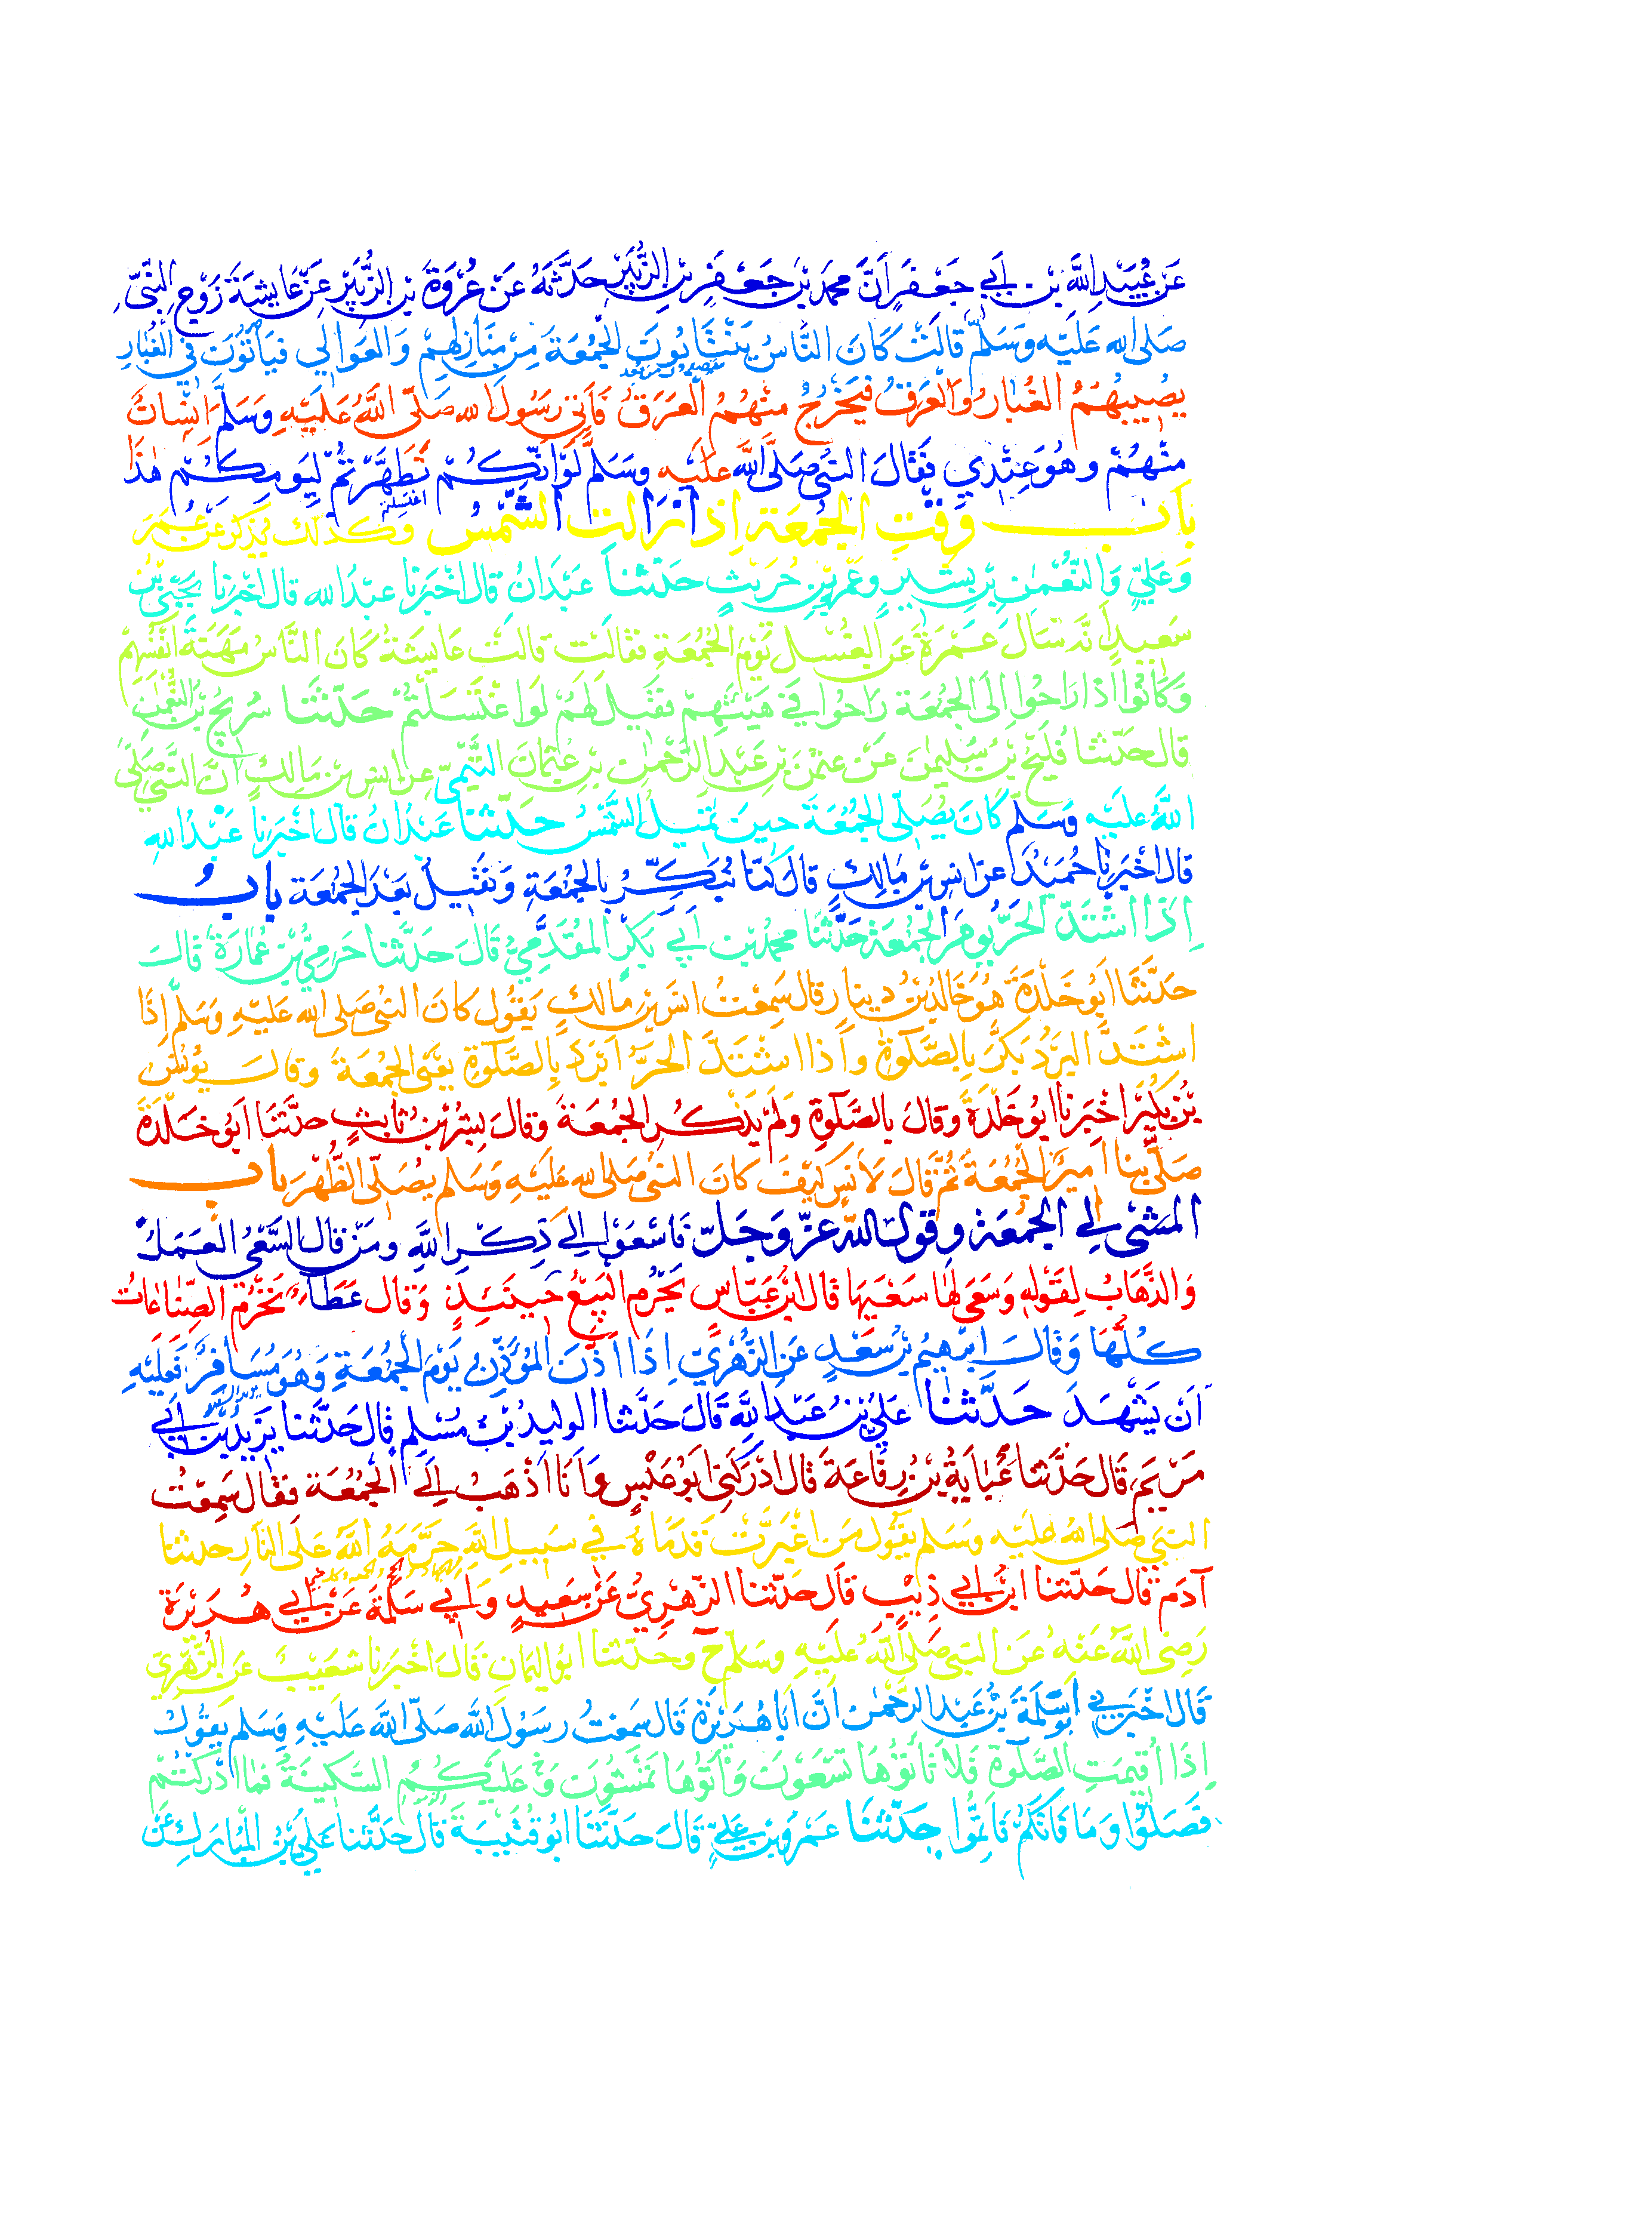 عَنْ عُبَيْدِ اللَّهِ بْنِ أَبِي جَعْفَرٍ أَنَّ مُحَمَّدَ بْنَ جَعْفَرِ بْنِ الزُّبَيْرِ حَدَّثَهُ عَنْ عُرْوَةَ بْنِ الزُّبَيْرِ عَنْ عَايِشَةَ زَوْجِ النَّبِيِّ
صَلَى الله عَلَيْهِ وَسَلَّمَ قَالَتْ كَانَ النَّاسُ يَنْتَابُونَ الْجُمُعَةَ مِنْ مَنَازِلِهِمْ وَالْعَوَالِي فَيَأْتُونَ فِي الْغُبَارِ
يُصِيبُهُمُ الْغُبَارُ وَالْعَرَقُ فَيَخْرُجُ مِنْهُمُ الْعَرَقُ فَأَتَى رَسُولَ الله صَلَّى اللَّهُ عَلَيْهِ وَسَلَّمَ إِنْسَانٌ
مِنْهُمْ وَهُوَ عِنْدِي فَقَالَ النَّبِيُّ صَلَّى اللَّه عَلَيْهِ وَسَلَّمَ لَوْ أَنَّكُمْ تَطَهَّرْتُمْ لِيَوْمِكُمْ هَذَا
بَابُ وَقْتِ الْجُمُعَة إِذَا زَالَت الشَّمْسُ وَكَذَلِكَ يُذْكَرُ عَنْ عُمَرَ
وَعَلِيٍّ وَالنُّعْمٰنِ بْنِ بَشِيرٍ وَعَمْرِو بْنِ حُرَيْثٍ حَدَّثَنَا عَبْدَانُ قَالَ أَخْبَرَنَا عَبْدُ الله قَالَ أَخْبَرَنَا يَحْيَى بْنُ
سَعِيدٍ أَنَّهُ سَأَلَ عَمْرَةَ عَنِ الْغُسْلِ يَوْمَ الْجُمُعَةِ فَقَالَتْ قَالَتْ عَايِشَةُ كَانَ النَّاسُ مَهَنَةَ أَنْفُسِهِمْ
وَكَانُوا إِذَا رَاحُوا إِلَى الْجُمُعَة رَاحُوا فِي هَيْئَتِهِمْ فَقِيلَ لَهُمْ لَوِ اغْتَسَلْتُمْ حَدَّثَنَا سُرَيْجُ بْنُ النُّعْمٰنِ
قَالَ حَدَّثَنَا فُلَيْحُ بْنُ سُلَيْمٰنَ عَنْ عثمٰنَ بْنِ عَبْدِ الرَّحْمٰنِ بْنِ عُثْمَانَ التَّيْمِيِّ عَنْ أَنَسِ بْنِ مَالِكٍ أَنَّ النَّبِيَّ صَلَّى
اللَّهُ عَلَيْهِ وَسَلَّمَ كَانَ يُصَلِّي الْجُمُعَةَ حِينَ تَمِيلُ الشَّمْسُ حَدَّثَنَا عَبْدَانُ قَالَ أَخْبَرَنَا عَبْدُ اللهِ
قَالَ أَخْبَرَنَا حُمَيْدٌ عَنْ أَنَسِ بْنِ مَالِكٍ قَالَ كُنَّا نُبَكِّرُ بِالْجُمُعَةِ وَنَقِيلُ بَعْدَ الْجُمُعَة بَابُ
إِذَا اشْتَدَّ الْحَرُّ يَوْمَ الْجُمُعَة حَدَّثَنَا مُحَمَّدُ بْنُ أَبِي بَكْرٍ الْمُقَدَّمِيُّ قَالَ حَدَّثَنَا حَرَمِيُّ بْنُ عُمَارَةَ قَالَ
حَدَّثَنَا أَبُو خَلْدَةَ هُوَ خَالِدُ بْنُ دِينَارٍ قَالَ سَمِعْتُ أَنَسَ بْنَ مَالِكٍ يَقُولُ كَانَ النَّبِيُّ صَلَى الله عَلَيْهِ وَسَلَّمَ إِذَا
اشْتَدَّ الْبَرْدُ بَكَّرَ بِالصَّلَوٰةِ وَإِذَا اشْتَدَّ الْحَرُّ أَبْرَدَ بِالصَّلَوٰةِ يَعْنِي الْجُمُعَةَ وَقَالَ يُونُسُ
بْنُ بُكَيْرٍ أَخْبَرَنَا أَبُو خَلْدَةَ وَقَالَ بِالصَّلَوٰةِ وَلَمْ يَذْكُرِ الْجُمُعَةَ وَقَالَ بِشْرُ بْنُ ثَابِتٍ حَدَّثَنَا أَبُو خَلْدَةَ
صَلَّى بِنَا أَمِيرٌ الْجُمُعَةَ ثُمَّ قَالَ لأَنَسٍ كَيْفَ كَانَ النَّبِيُّ صَلى الله عَلَيْهِ وَسَلَّمَ يُصَلِّي الظُّهْرَ بَابُ
الْمَشْيِ إِلَى الْجُمُعَة وَقَوْلِ اللَّهِ عَزَّ وَجَلَّ فَاسْعَوْا إِلَى ذِكْرِ اللَّهِ وَمَنْ قَالَ السَّعْيُ الْعَمَلُ
وَالذَّهَابُ لِقَوْلِهِ وَسَعَى لَهَا سَعْيَهَا قَالَ ابْنُ عَبَّاسٍ يَحْرُمُ الْبَيْعُ حِينَئِذٍ وَقَالَ عَطَاءٌ تَحْرُمُ الصِّنَاعَاتُ
كُلُّهَا وَقَالَ إِبْرٰهِيمُ بْنُ سَعْدٍ عَنِ الزُّهْرِيِّ إِذَا أَذَّنَ الْمُؤَذِّنُ يَوْمَ الْجُمُعَةِ وَهُوَ مُسَافِرٌ فَعَلَيْهِ
أَنْ يَشْهَدَ حَدَّثَنَا عَلِيُّ بْنُ عَبْدِ اللَّهِ قَالَ حَدَّثَنَا الْوَلِيدُ بْنُ مُسْلِمٍ قَالَ حَدَّثَنَا يَزِيدُ بْنُ أَبِي
مَرْيَمَ قَالَ حَدَّثَنَا عَبَايَةُ بْنُ رِفَاعَةَ قَالَ أَدْرَكَنِي أَبُو عَبْسٍ وَأَنَا أَذْهَبُ إِلَى الْجُمُعَة فَقَالَ سَمِعْتُ
النَّبِيَّ صَلى اللهُ عَلَيْهِ وَسَلَّمَ يَقُولُ مَنِ اغْبَرَّتْ قَدَمَاهُ فِي سَبِيلِ اللَّهِ حَرَّمَهُ اللَّهُ عَلَى النَّارِ حدثنا
آدَمُ قَالَ حَدَّثَنَا ابْنُ أَبِي ذِيْبٍ قَالَ حَدَّثَنَا الزُّهْرِيُّ عَنْ سَعِيدٍ وَأَبِي سَلَمَةَ عَنْ أَبِي هُرَيْرَةَ
رَضِيَ اللَّهُ عَنْهُ عَنِ النَّبِيِّ صَلَّى اللَّهُ عَلَيْهِ وَسَلَّمَ ح وَحَدَّثَنَا أَبُو الْيَمَانِ قَالَ أَخْبَرَنَا شُعَيْبٌ عَنِ الزُّهْرِيِّ
قَالَ أَخْبَرَنِي أَبُو سَلَمَةَ بْنُ عَبْدِ الرَّحْمٰنِ أَنَّ أَبَا هُرَيْرَةَ قَالَ سَمِعْتُ رَسُولَ اللَّه صَلَّى اللَّهُ عَلَيْهِ وَسَلَّمَ يَقُولُ
إِذَا أُقِيمَتِ الصَّلَوٰةُ فَلاَ تَأْتُوهَا تَسْعَوْنَ وَأْتُوهَا تَمْشُونَ وَعَلَيْكُمُ السَّكِينَةُ فَمَا أَدْرَكْتُمْ
فَصَلُّوا وَمَا فَاتَكُمْ فَأَتِمُّوا حَدَّثَنَا عَمْرُو بْنُ عَلِيٍّ قَالَ حَدَّثَنَا أَبُو قُتَيْبَةَ قَالَ حَدَّثَنَا عَلِيُّ بْنُ الْمُبَارَكِ عَنْ